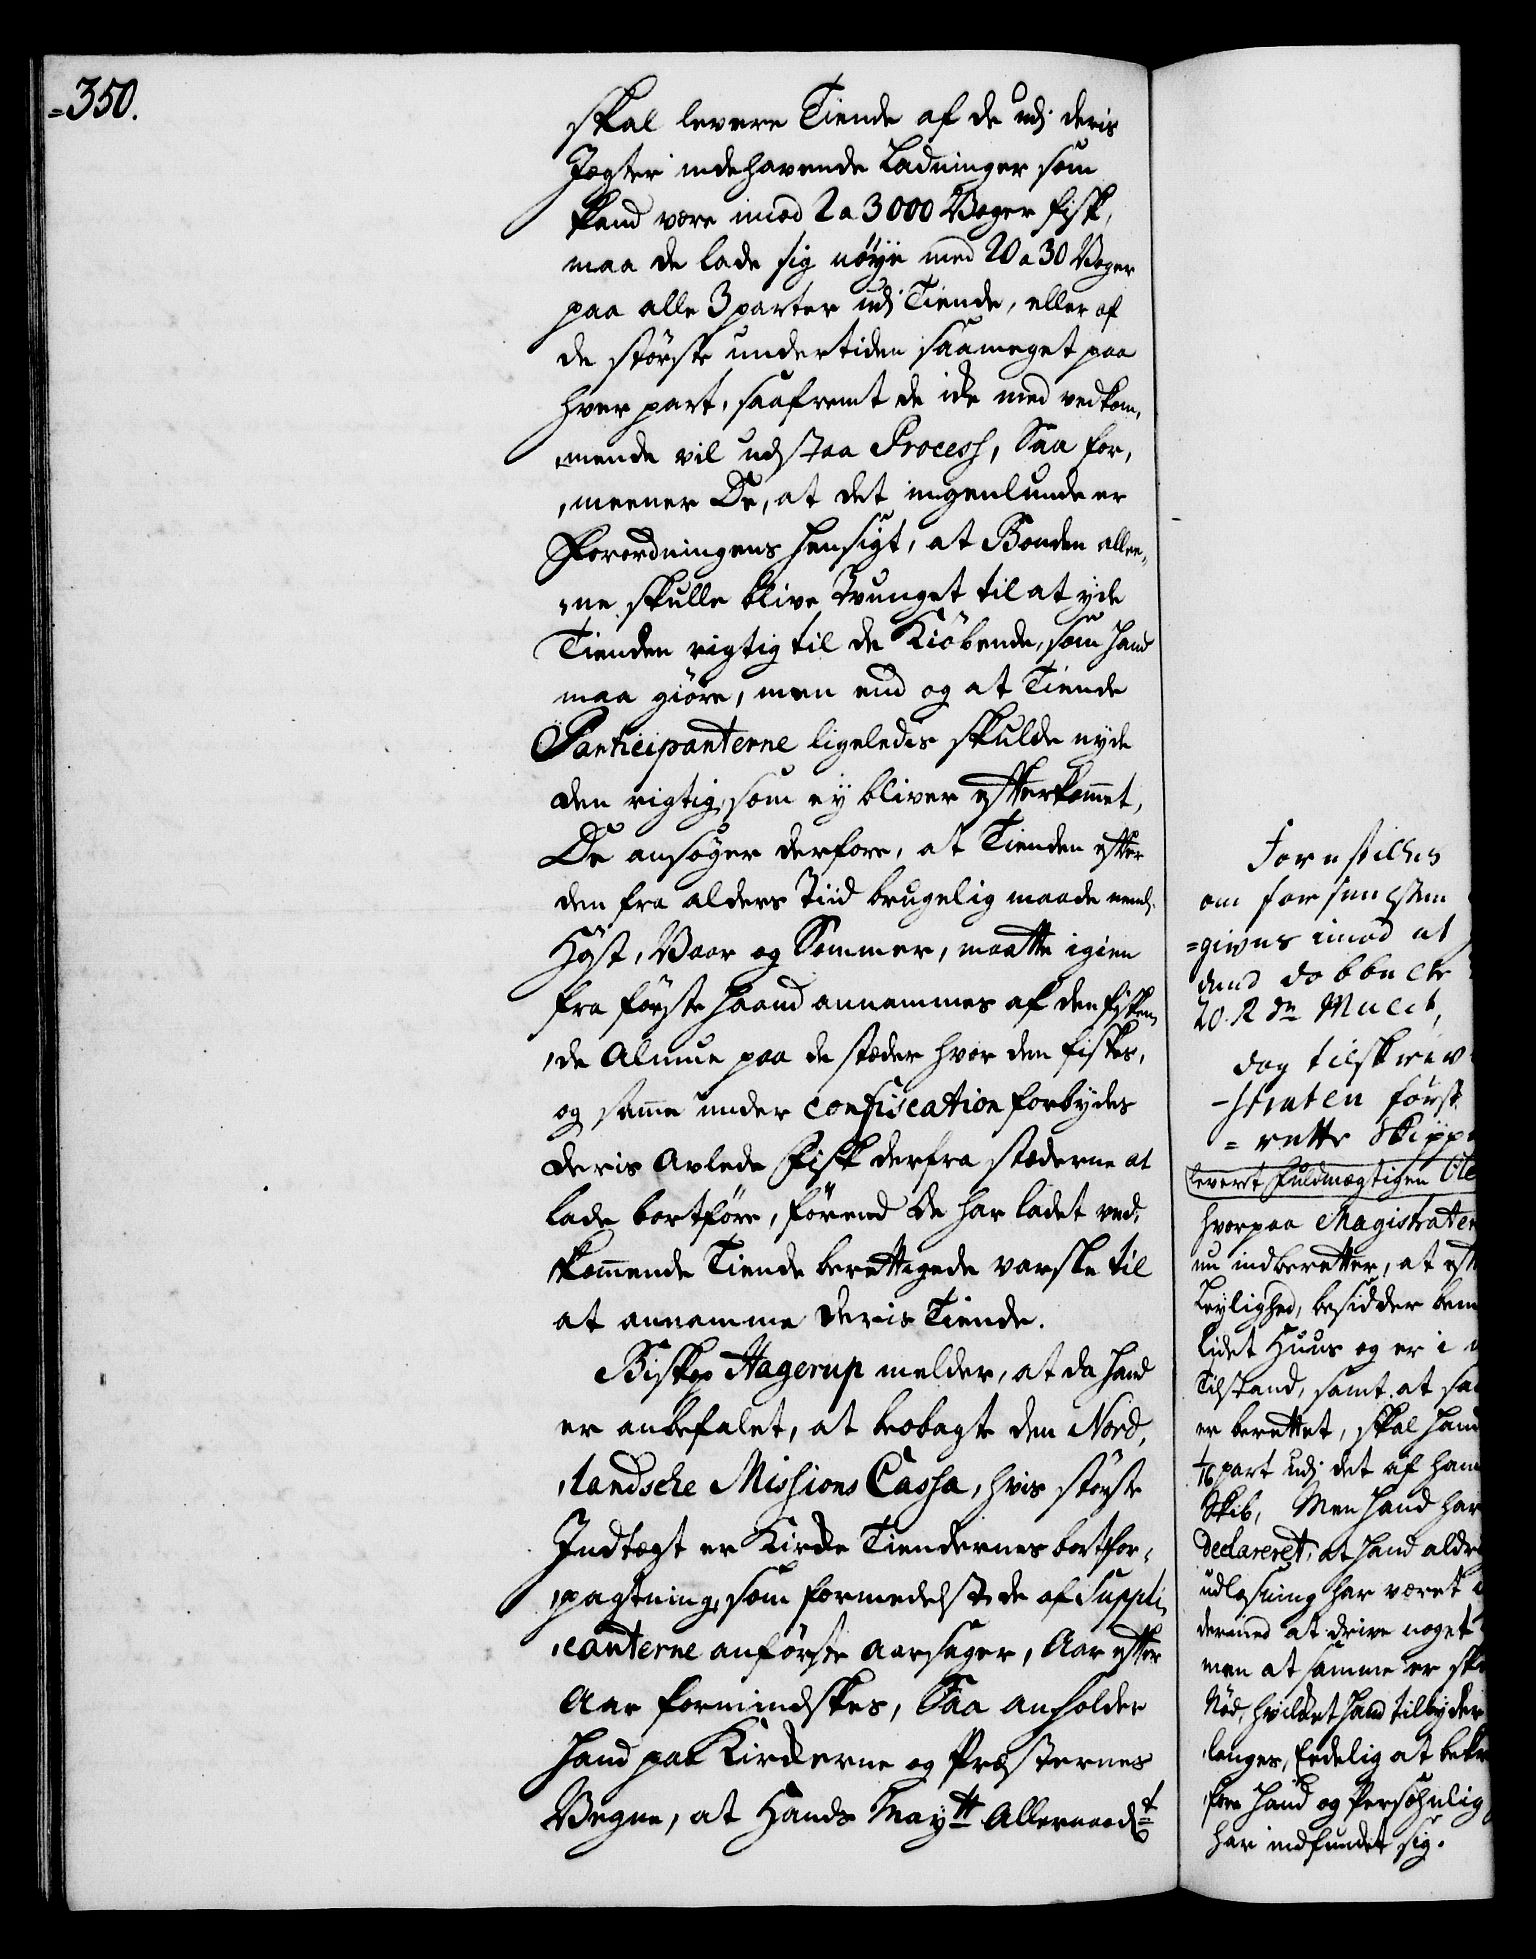 =350.
skal levere Tiende af de udj deris
Jægter indehavende Ladninger som
kand være imod 2 a 3000 Voger fisk,
maa de lade sig nøye med 20 a 30 Voger
paa alle 3 parter udj Tiende, eller af
de største undertiden saameget paa
hver part, saafremt de icke med vedkom,
,mende vil udstaa Process, Saa for,
,meener De, at det ingenlunde er
Forordningens hensigt, at Bonden allee,
,ne skulle blive tvunget til at yde
Tienden rigtig til de Kiøbende, som hand
maa giøre, men end og at Tiende
Participanterne ligeledes skulde nyde
den rigtig, som ey bliver efterkommet,
De ansøger derfore, at Tienden efter
den fra alders Tiid brugelig maade neml.
Høst, Vaar og Sommer, maatte igien
fra første haand annammes af den fisken,
,de Almue paa de stæder hvor den fiskes,
og samme under confiscation forbydes
deris Avlede Fisk derfra stæderne at
lade bortføre, førend de har ladet ved,
kommende Tiende berettigede varske til
at annamme deris Tiende.
Biskop Hagerup melder, at da hand
er anbefalet, at beobagte den Nord,
,landsche Missions Cassa, hvis største
Indtægt er Kirke Tiendernes bortfor,
,pagtning, som formedelst de af Suppli,
,canterne anførte aarsager, Aar efter
Aar formindskes, Saa anholder
hand paa Kirkerne og Præsternes
Vegne, at Hands Maytt Allernaadt
Forestilles
om for
=givns imod at
dend dobbelte
20. R dr Mulct,
dog tilskrev
-straten først
=rette Skippe
leverst fuldmægtigen Ole
hvorpaa Magistraten
nu indberetter, at eft
Leylighed, besidder bem
lidet Huus og er i
Tilstand, samt at saa
er berettet, skal hand
1/16 part udj det af ham
Skib, Men hand har
declareret, at hand aldri
udlosning har været
dermed at drive noget
men at samme er ske
Nød, hvilket hand tilbyder
langes, Eedelig at bekr
fore hand og Persohnlig
har indfundet sig.